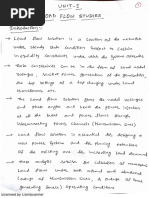 UNIT-I
LOAD FLOW STUDIES
①
Introduction:-
* Load flow solution is a solution of the network
under steady state condition subject to certain
inequality constraints under which the system operates
* These constraints can be in the form of load nodal
voltages, reactive power generation of the generators,
the tap settings of a tap changing under load
transformer etc.
* The load flow solution gives the nodal voltages
and phase angles and hence the power injection
at all the buses and power flows through
interconnecting power channels (transmission lines)
* Load flow solution is essential for designing a
new power system and for planning extension
of the existing one for increasing load demand
* These analysis require the calculation of numerous
load flows under both normal and abnormal
(outage of transmission lines, & outage of some
generating source) operating conditions
Scanned by CamScanner